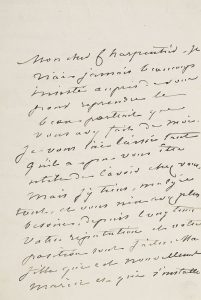 Mon cher Charpentier, je
n'ai jamais beaucoup
insisté auprès de vous
pour reprendre le
beau portrait que
vous avez fait de moi.
Je vous l'ai laissé tant
qu'il a pu vous être
utile de l'avoir chez vous,
mais j'y tiens, malgré
tout, et vous n'en avez plus
besoin, depuis longtems
votre réputation et votre
position sont faites. Ma
fille qui est nouvellement
mariée et qui s'installe